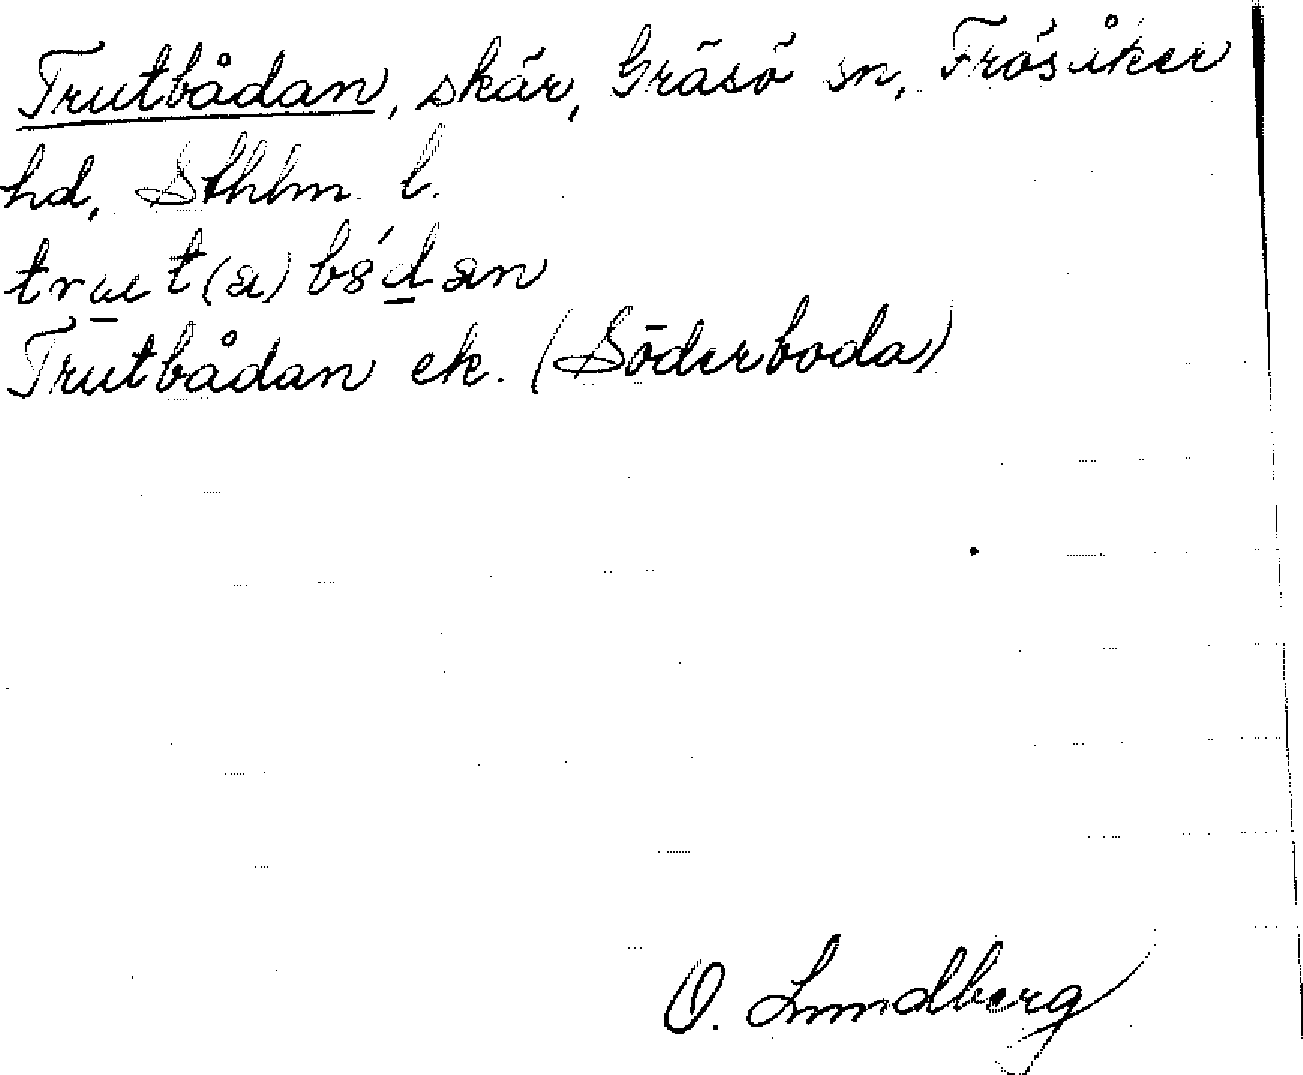 Trutbådan, skär, Gräsö sn, Frösåker
hd, Sthlm l.
Trutbådan ek. (Söderboda)
O. Lundberg